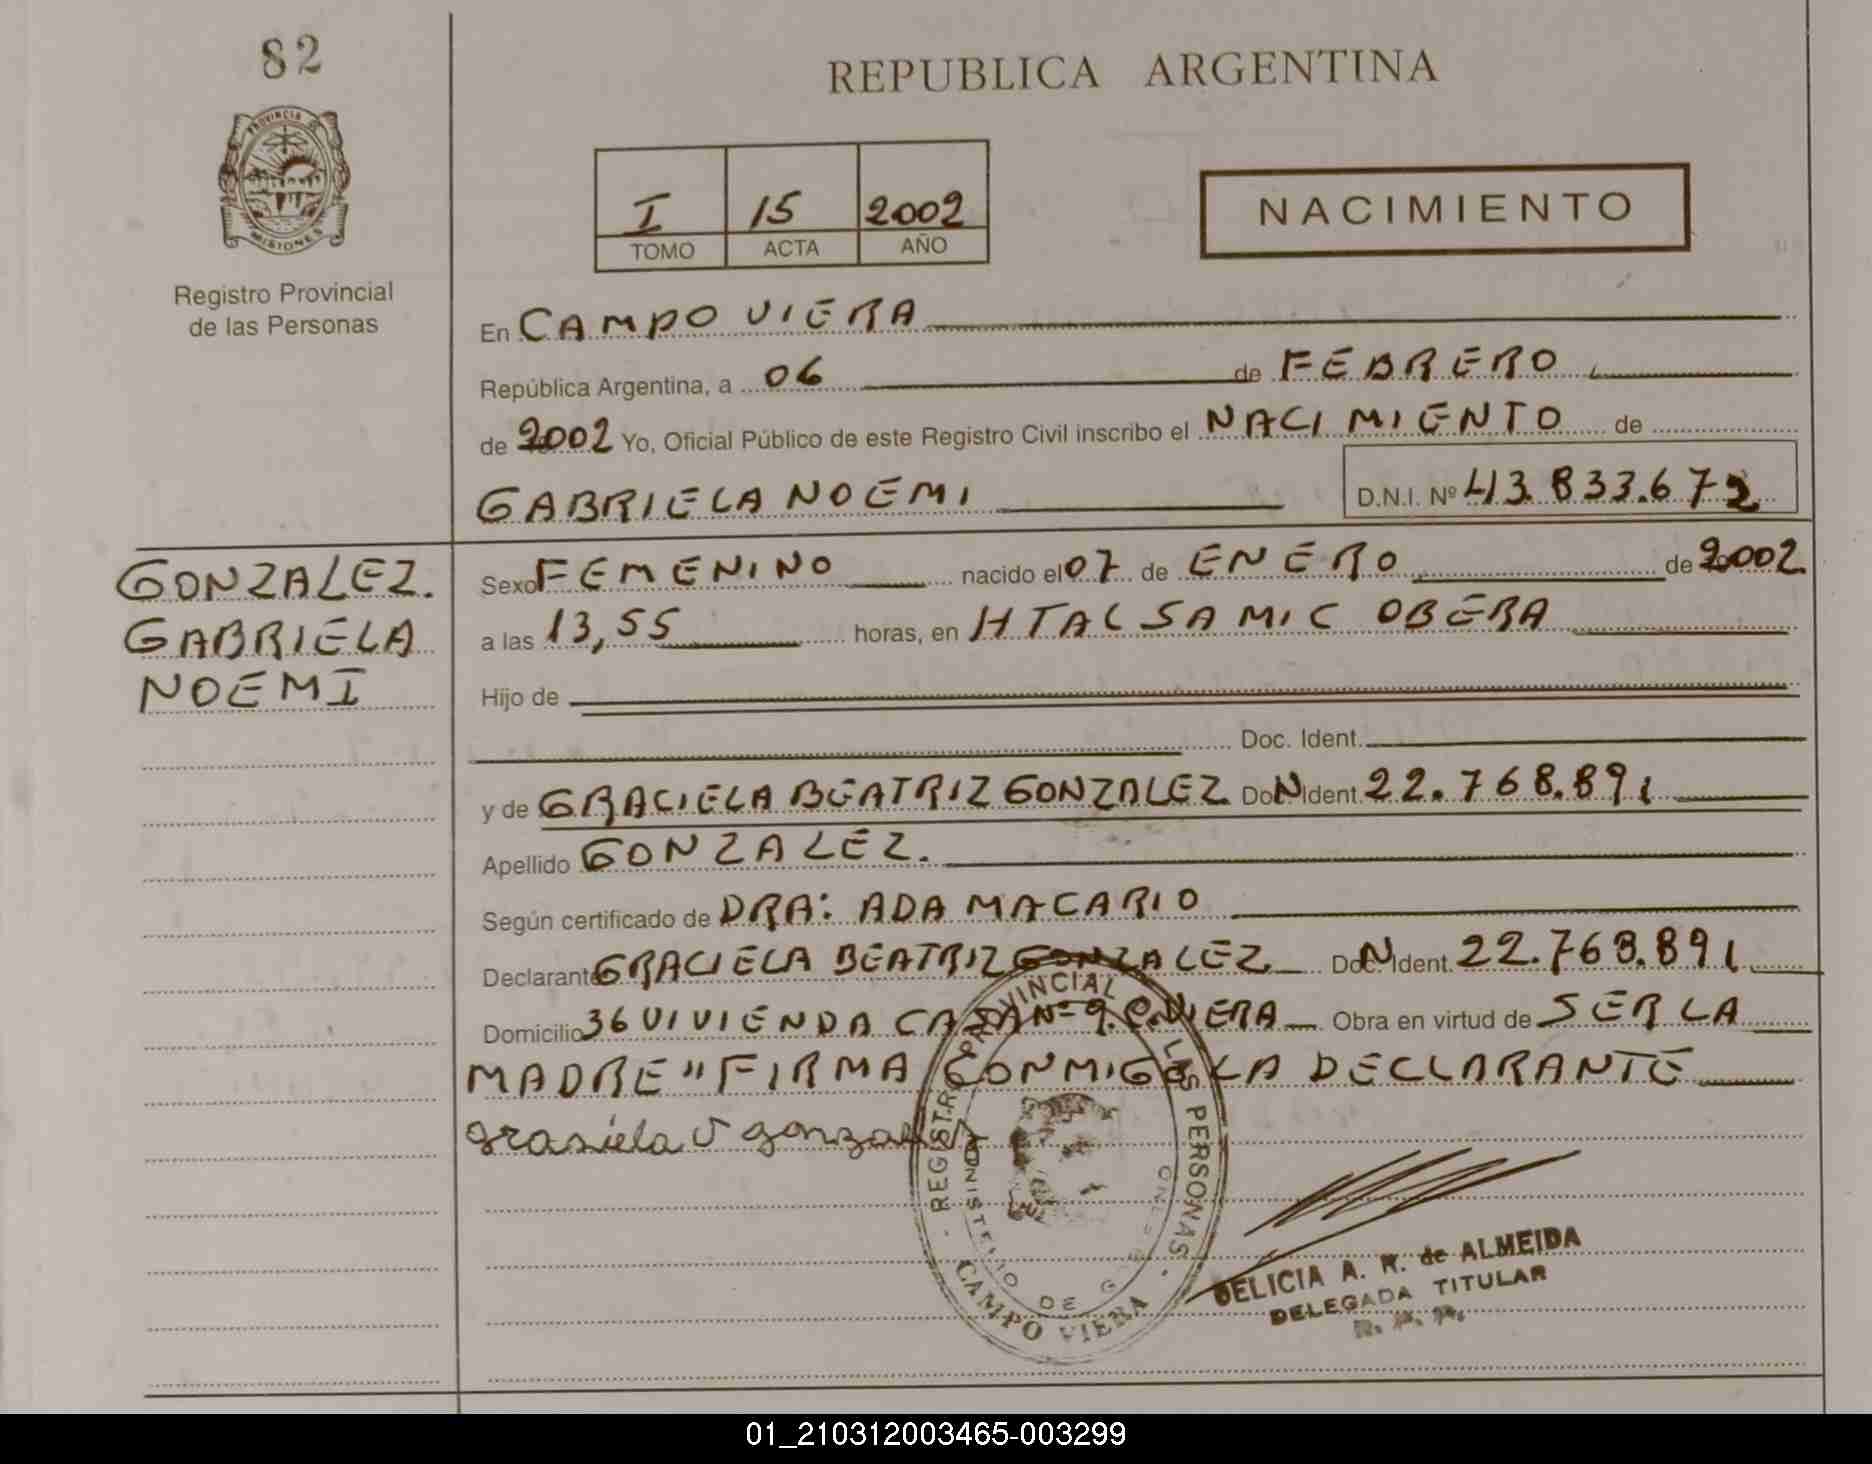 82
REPUBLICA ARGENTINA
PROVINCIA DE
MISIONES
Registro Provincial
de las Personas
I 15 2002
TOMO ACTA AÑO
NACIMIENTO
En CAMPO VIERA
República Argentina, a 06 de FEBRERO
de 2002 Yo, Oficial Público de este Registro Civil inscribo el NACIMIENTO de
GABRIELA NOEMI D.N.I. Nº 43.833.672
GONZALEZ.
GABRIELA
NOEMI
Sexo FEMENINO nacido el 07 de ENERO de 2002
a las 13,55 horas, en HTAL SAMIC OBERA
Hijo de
Doc. Ident.
y de GRACIELA BEATRIZ GONZALEZ Doc. Ident. 22.768.891
Apellido GONZALEZ.
Según certificado de DRA: ADA MACARIO
Declarante GRACIELA BEATRIZ GONZALEZ Doc. Ident. 22.768.891
Domicilio 36 VIVIENDA CASA Nº 9. C. VIERA Obra en virtud de SER LA
MADRE" FIRMA CONMIGO LA DECLARANTE
REGISTRO PROVINCIAL LAS PERSONAS
MINISTERIO DE
CAMPO VIERA
DELICIA A. R. de ALMEIDA
DELEGADA TITULAR
01_210312003465-003299